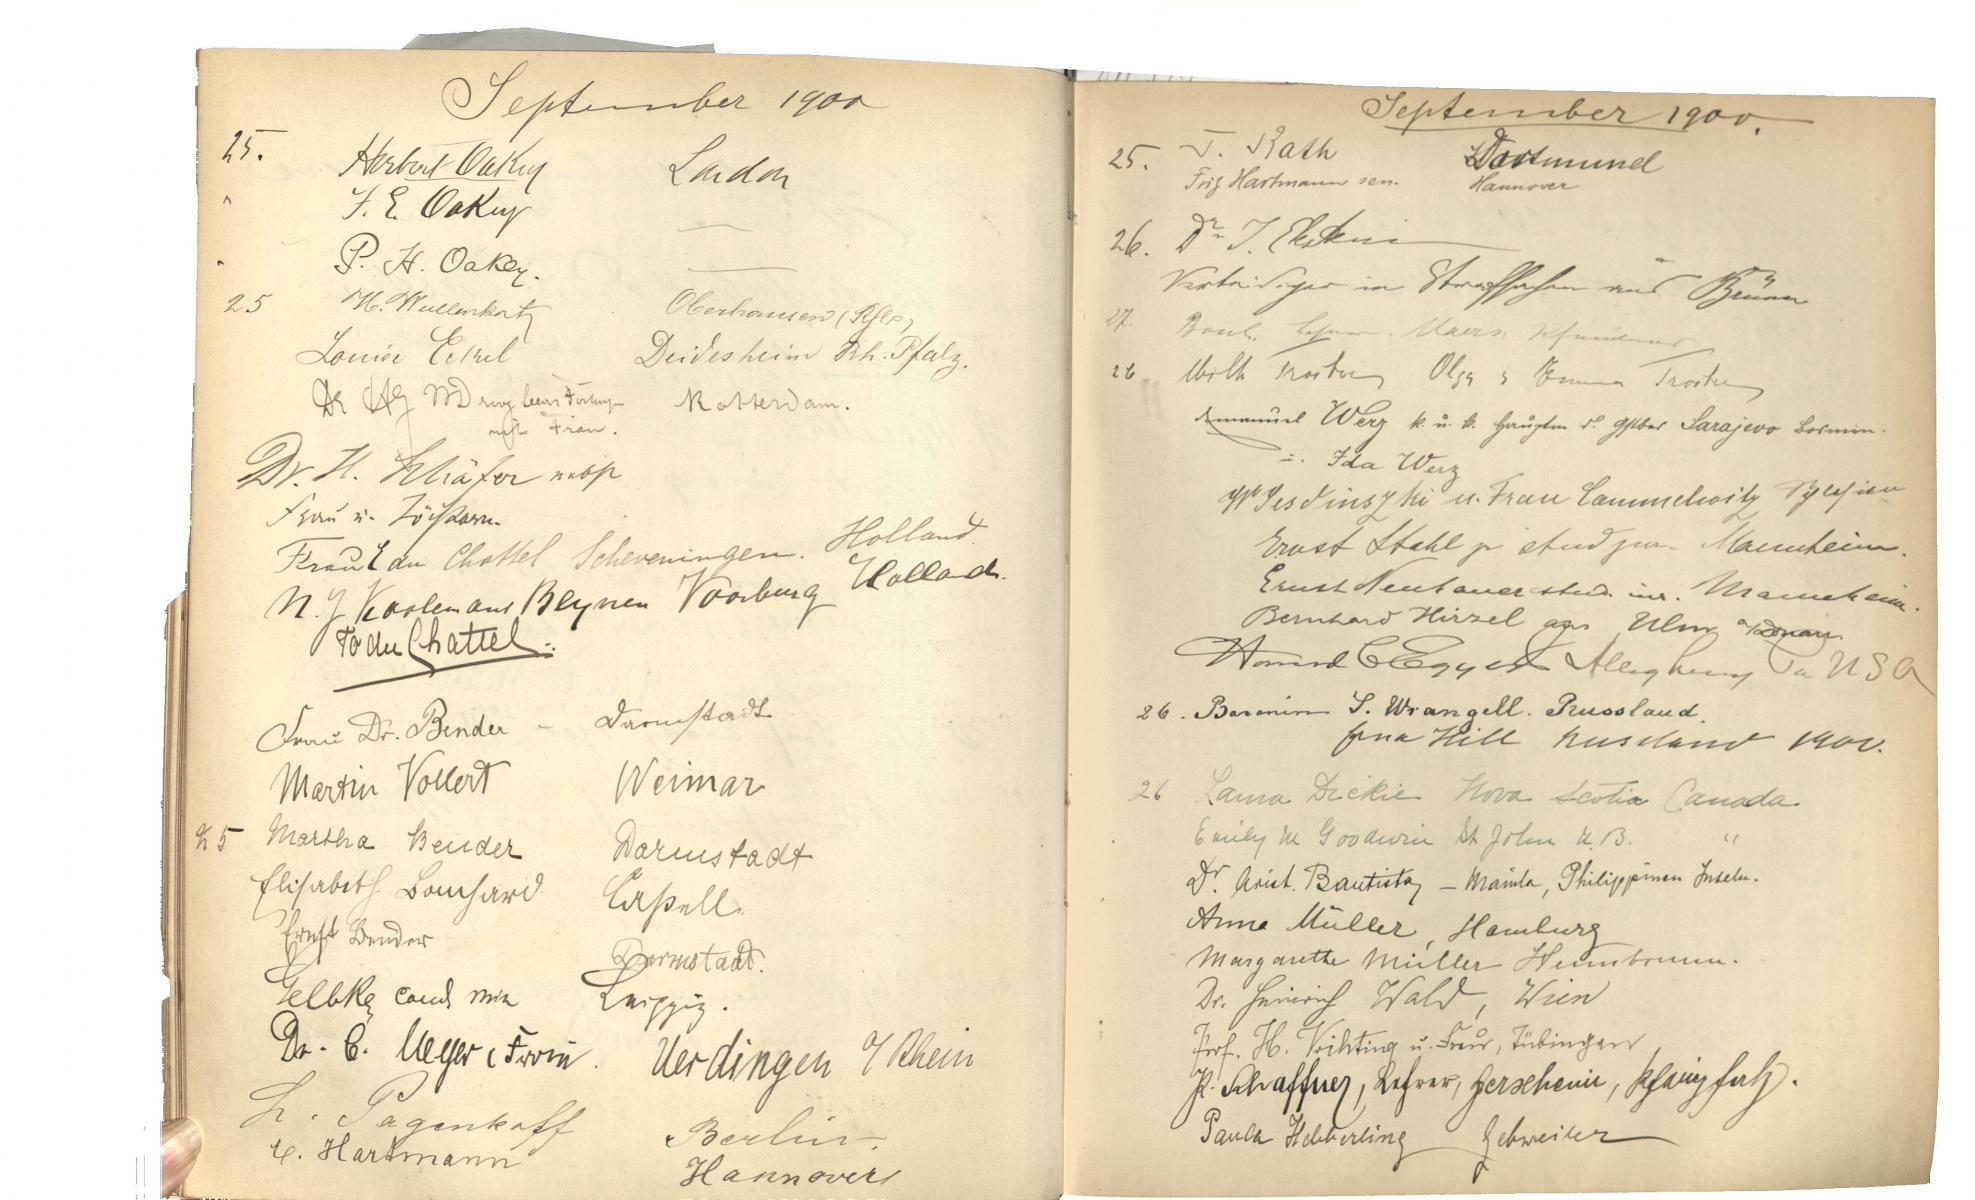 September 1900
25. Herbert Oakey London
" F. E. Oakey —
" P. H. Oakey. —
25 H. Wullenkord Oberhausen (Rhld)
Louise Eckel Deidesheim Rh. Pfalz.
Dr Rotterdam.
Frau.
Dr. H. Schäfer nebst
Frau u. Töchtern.
Frau du Chattel Scheveningen. Holland.
N. J. Koolemans Beynen Voorburg Holland.
To du Chattel.
Frau Dr. Bender – Darmstadt
Martin Vollert Weimar
25 Martha Bender Darmstadt
Elisabeth Bomhard Cassell.
Ernst Bender Darmstadt.
Gelbke cand. Leipzig.
Dr. C. Meyer & Frau. Uerdingen a/Rhein
L. Pagenkoff Berlin.
C. Hartmann Hannover
September 1900.
25. T. Rath Dortmund
Fritz Hartmann sen. Hannover
26. Dr. J. Ekstein
Verteidiger in Strafsachen aus Brünn
27.
26 Troster Olga & Emma Troster
Emanuel Werz k. u. k. Hauptm. Sarajevo Bosnien.
u. Ida Werz
u. Frau
Ernst Stahl jr stud jur. Mannheim.
Ernst Neubauer stud. iur. Mannheim.
Bernhard Hirzel aus Ulm a/Donau.
Howard C Eggers Allegheny Pa USA
26. Baronin S. Wrangell. Russland.
Hill Russland 1900.
26 Laura Dickie Nova Scotia Canada
Emily M Goodwin St John N. B. "
Dr. Arist. Bautista – Manila, Philippinen Inseln.
Anna Müller, Hamburg
Margarethe Müller
Dr. Heinrich Wald, Wien
Prof. H. Vöchting u. Frau, Tübingen
P. Schaffner, Lehrer,
Paula Hebberling Gebweiler